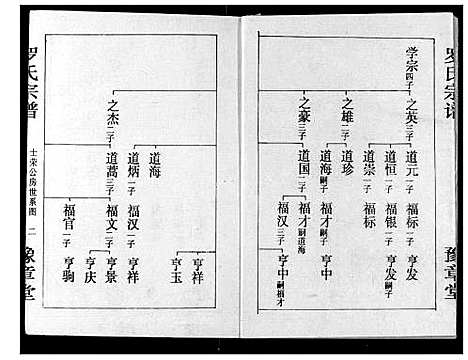 罗氏宗谱
豫章堂
学宗四子
之英三子
之雄二子
之豪三子
道元一子
道恒一子
道崇一子
道珍
道海嗣子
道国二子
福标一子
福银嗣子
福标
福才嗣子
福才嗣道海
福汉三子
亨发
亨发嗣子
亨中
亨中嗣福才
之杰三子
道海
道炳二子
道蒿三子
福汉二子
福文二子
福官一子
亨祥
亨玉
亨祥
亨景
亨庆
亨驹
罗氏宗谱
士荣公房世系图 二
豫章堂